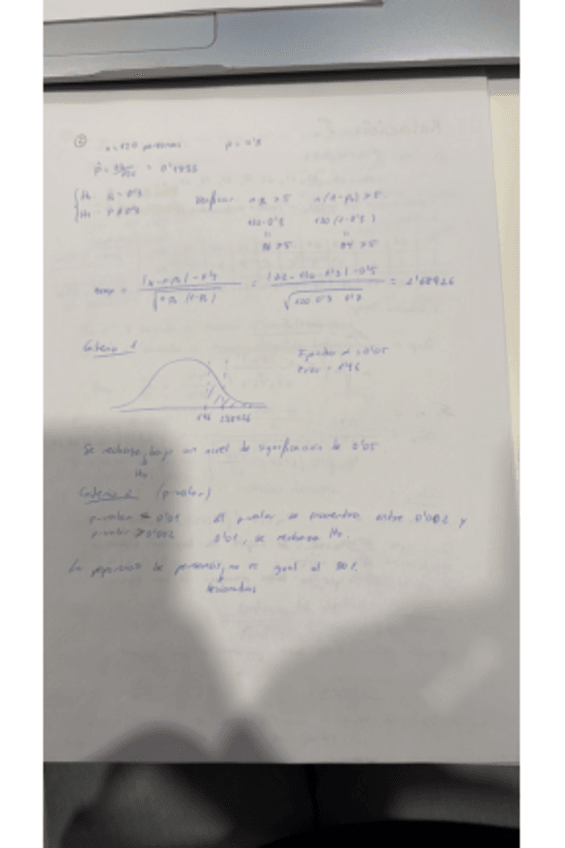 ②
n = 120 personas p = 0'3
p̂ = = 0'1833
H₀: p₀ = 0'3
H₁: p ≠ 0'3
Verificar n p₀ > 5 n(1-p₀) > 5.
120·0'3 120(1-0'3)
" "
36 > 5 84 > 5
zexp = (|x - n p₀| - 0'5) / √(n p₀ (1-p₀)) = (|22 - 120·0'3| - 0'5) / √(120·0'3·0'7) = 2'68926
Criterio 1
Fijado α = 0'05
= 1'96
1'96 2'68926
Se rechaza, bajo un nivel de significación de 0'05
H₀
Criterio 2 (p-valor)
p-valor < 0'01 El p-valor se encuentra entre 0'002 y
p-valor > 0'002 0'01, se rechaza H₀.
La proporción de personas, no es igual al 30%.
lesionadas